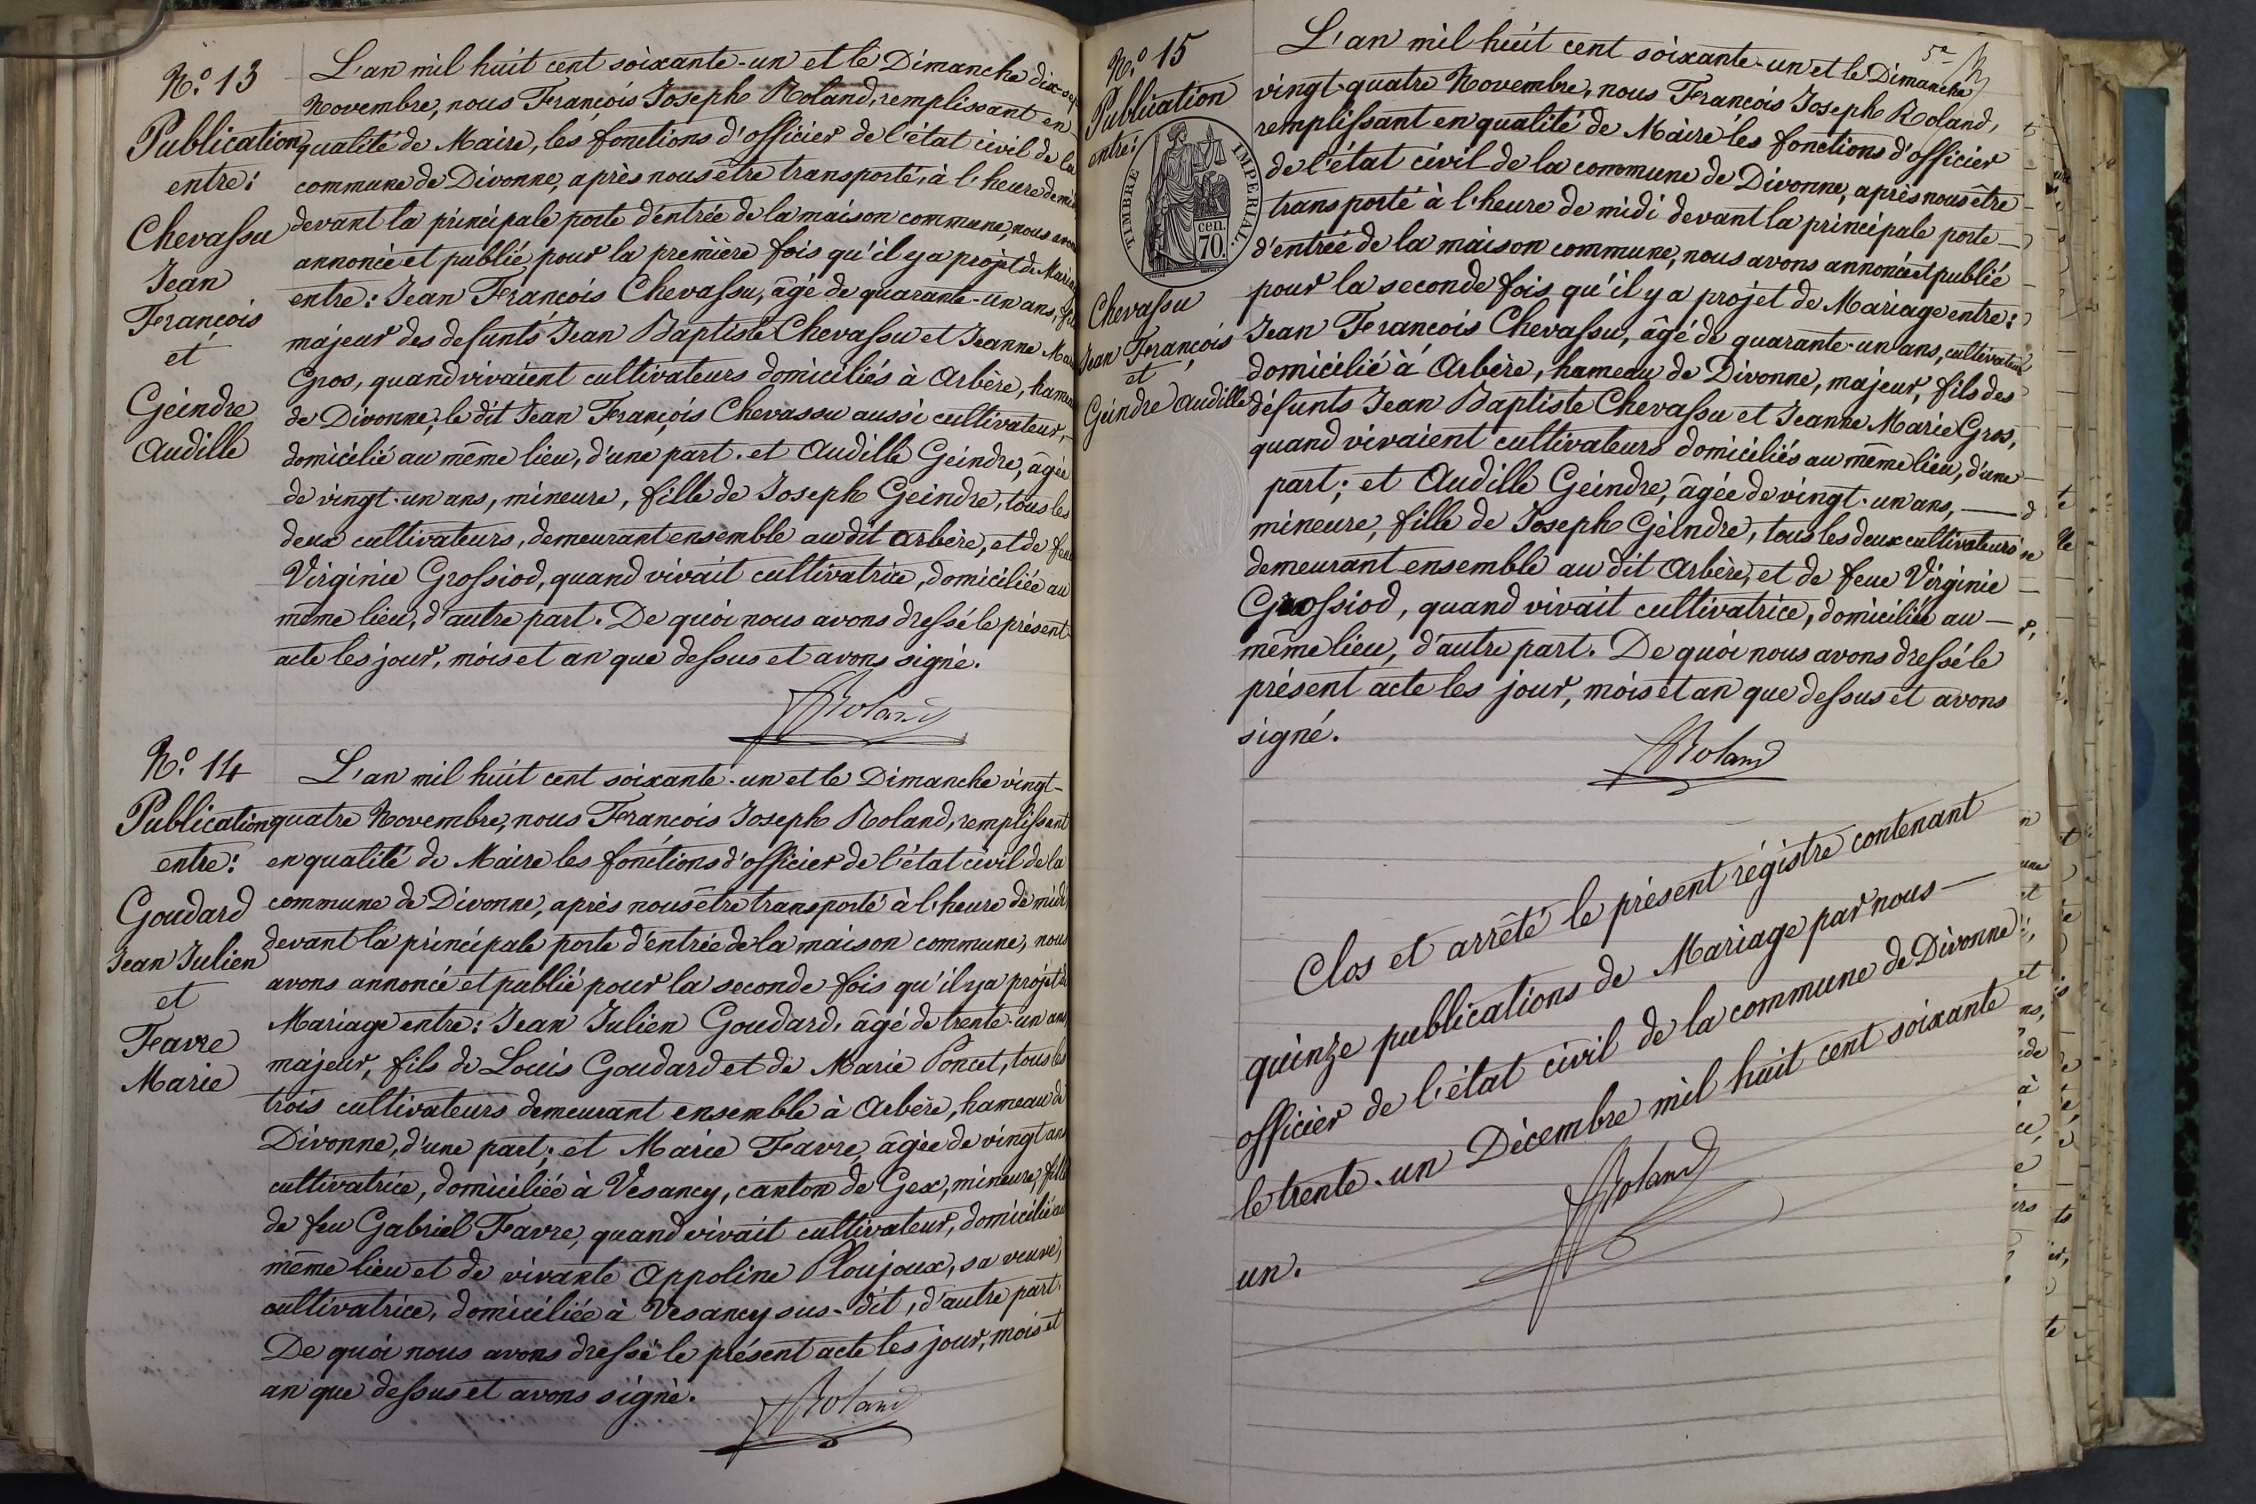 N.º 13
Publication
entre:
Chevassu
Jean
François
et
Geindre
Audille
L'an mil huit cent soixante-un et le Dimanche dix-sept
Novembre, nous François Joseph Roland, remplissant en
qualité de Maire, les fonctions d'officier de l'état civil de la
commune de Divonne, après nous être transporté, à l'heure de midi
devant la principale porte d'entrée de la maison commune, nous avons
annoncé et publié pour la première fois qu'il y a projet de Mariage
entre: Jean François Chevassu, âgé de quarante-un ans, fils
majeur des defunts Jean Baptiste Chevassu et Jeanne Marie
Gros, quand vivaient cultivateurs domiciliés à Arbère, hameau
de Divonne; le dit Jean François Chevassu aussi cultivateur,
domicilié au même lieu, d'une part. et Audille Geindre, âgée
de vingt-un ans, mineure, fille de Joseph Geindre, tous les
deux cultivateurs, demeurant ensemble au dit Arbère, et de feue
Virginie Grossiod, quand vivait cultivatrice, domiciliée au
même lieu, d'autre part. De quoi nous avons dressé le présent
acte les jour, mois et an que dessus et avons signé.
Roland
N.º 14
Publication
entre:
Goudard
Jean Julien
et
Favre
Marie
L'an mil huit cent soixante-un et le Dimanche vingt-
quatre Novembre, nous François Joseph Roland, remplissant
en qualité de Maire les fonctions d'officier de l'état civil de la
commune de Divonne, après nous être transporté à l'heure de midi
devant la principale porte d'entrée de la maison commune, nous
avons annoncé et publié pour la seconde fois qu'il y a projet de
Mariage entre: Jean Julien Goudard, âgé de trente-un ans
majeur, fils de Louis Goudard et de Marie Poncet, tous les
trois cultivateurs demeurant ensemble à Arbère, hameau de
Divonne, d'une part; et Marie Favre, âgée de vingt ans
cultivatrice, domiciliée à Vesancy, canton de Gex, mineure, fille
de feu Gabriel Favre, quand vivait cultivateur, domicilié au
même lieu et de vivante Appoline Ploujoux, sa veuve,
cultivatrice, domiciliée à Vesancy sus-dit, d'autre part.
De quoi nous avons dressé le présent acte les jour, mois et
an que dessus et avons signé.
Roland
N.º 15
Publication
entre:
TIMBRE IMPERIAL.
70. cen.
Chevassu
Jean François
et
Geindre Audille
5e R
L'an mil huit cent soixante-un et le Dimanche
vingt-quatre Novembre, nous François Joseph Roland,
remplissant en qualité de Maire les fonctions d'officier
de l'état civil de la commune de Divonne, après nous être
transporté à l'heure de midi devant la principale porte
d'entrée de la maison commune, nous avons annoncé et publié
pour la seconde fois qu'il y a projet de Mariage entre:
Jean François Chevassu, âgé de quarante-un ans, cultivateur
domicilié à Arbère, hameau de Divonne, majeur, fils des
défunts Jean Baptiste Chevassu et Jeanne Marie Gros,
quand vivaient cultivateurs domiciliés au même lieu, d'une
part; et Audille Geindre, âgée de vingt-un ans,
mineure, fille de Joseph Geindre, tous les deux cultivateurs
demeurant ensemble au dit Arbère, et de feue Virginie
Grossiod, quand vivait cultivatrice, domiciliée au
même lieu, d'autre part. De quoi nous avons dressé le
présent acte les jour, mois et an que dessus et avons
signé.
Roland
Clos et arrêté le présent régistre contenant
quinze publications de Mariage par nous
officier de l'état civil de la commune de Divonne
le trente-un Décembre mil huit cent soixante
un.
Roland